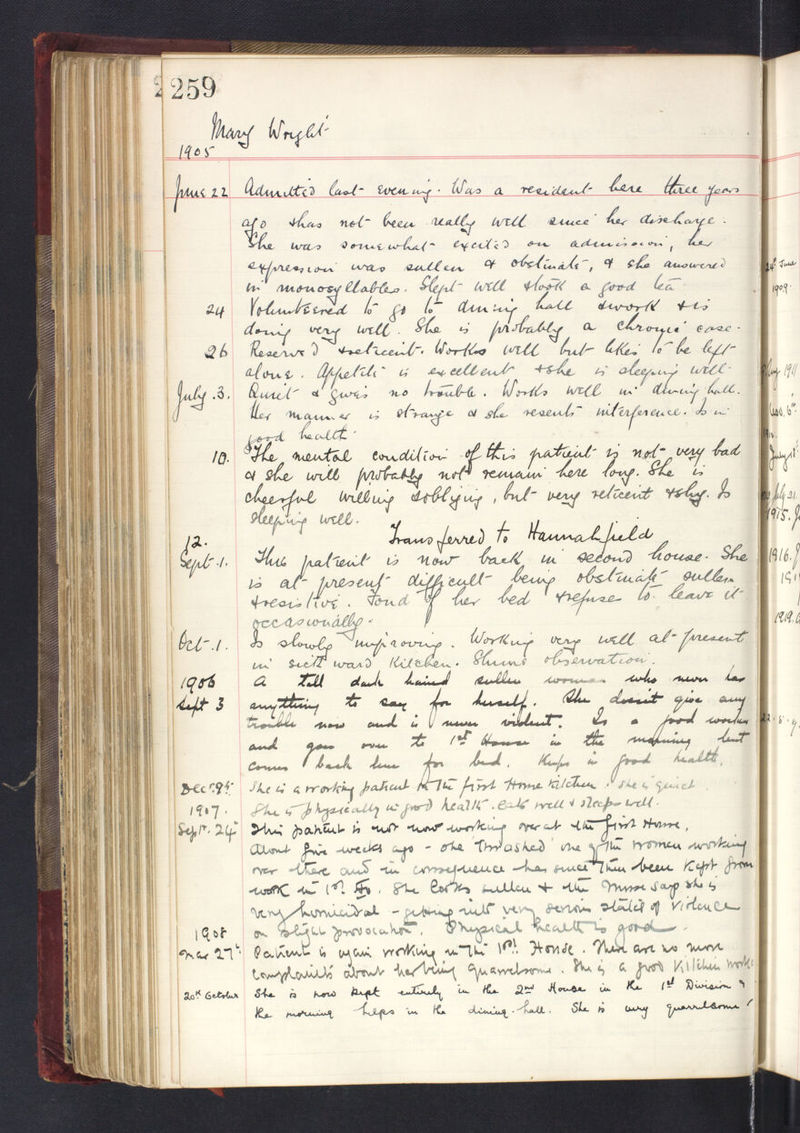 259
Mary Wright
1905
June 22 Admitted last evening. Was a resident here three years
ago & has not been really well since her discharge.
She was somewhat excited on admission, her
expression was sullen & obstinate, & she answered
in monosyllables. Slept well & took a good tea
24 Volunteered to go to dining hall & work & is
doing very well. She is probably a chronic case.
26 Reserved & reticent. Works well but likes to be left
alone. Appetite is excellent & she is sleeping well.
July. 3. Quiet & gives no trouble. Works well in dining hall.
Her manner is strange & she resents interference. Is in
good health.
10. The mental condition of this patient is not very bad
& she will probably not remain here long. She is
cheerful willing & obliging, but very reticent & shy. Is
sleeping well.
12. Transferred to Hannahfield
Sept. 1. This patient is now back in second house. She
is at present difficult being obstinate sullen
& resistive. Fond of her bed & refuses to leave it
occasionally.
Oct. 1. Is slowly improving. Working very well at present
in sick ward kitchen. Shuns observation.
1906 A tall dark haired sullen woman who never has
Sept 3 anything to say for herself. She doesn't give any
trouble now and is never violent. Is a good worker
and goes over to 1st House in the morning but
comes back here for bed. Keeps in good health.
Dec. 9th. She is a working patient in the first House kitchen. She is quiet.
1907. She is physically in good health. eats well & sleeps well.
Sept. 24th This patient is not now working over at the first House.
About five weeks ago - she thrashed one of the women working
over there and in consequence has since then been kept from
work in 1st Ho. She looks sullen & the nurse says she is
very homicidal - getting into very serious states of violence
on slight provocation. Physical health is good
1908
Mar 27th Patient is again working in the 1st House. There are no more
complaints about her being quarrelsome. She is a good kitchen
20th October She is now kept entirely in the 2nd House in the 1st Division &
the morning helps in the dining-hall. She is very quarrelsome
24th June
1909.
1911
1915.
1916.
1919.